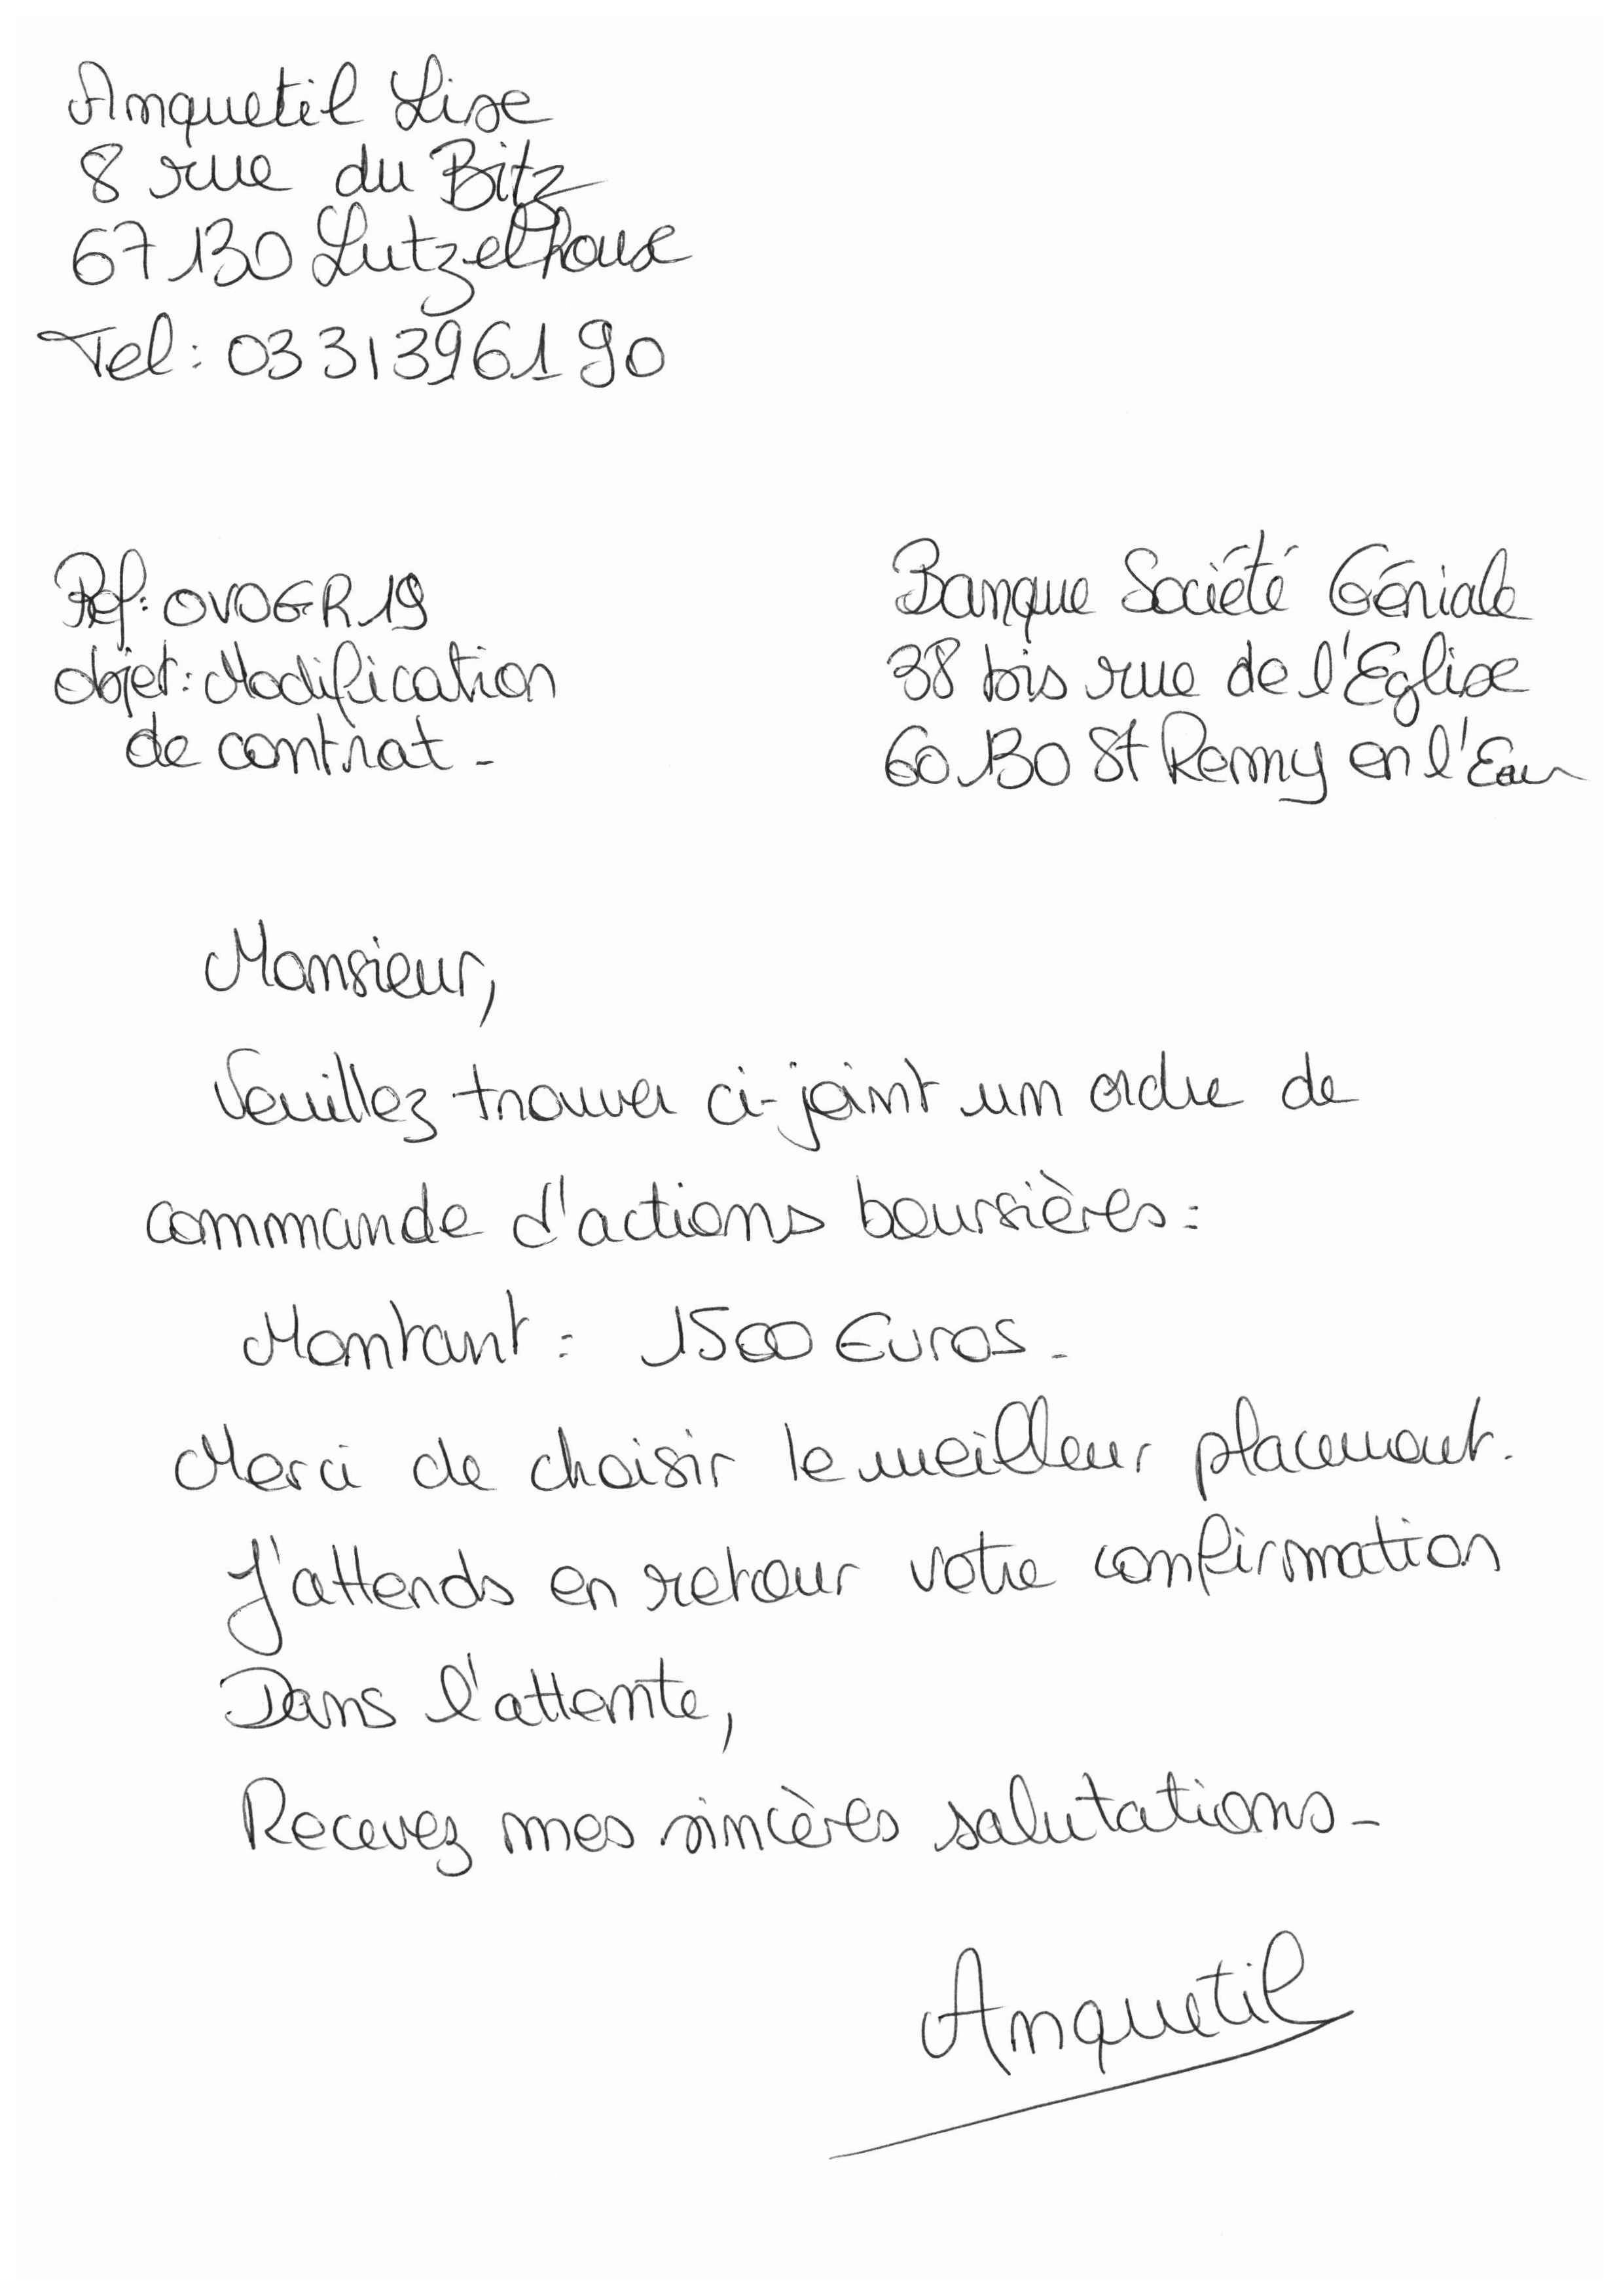 Anquetil Lise
8 rue du Bitz
67130 Lutzelhouse
Tel: 0331396190
Ref: OVOGR19
objet: Modification
de contrat -
Banque Société Géniale
38 bis rue de l'Eglise
60130 St Remy en l'Eau
Monsieur,
Veuillez trouver ci-joint un ordre de
commande d'actions boursières:
Montant : 1500 Euros -
Merci de choisir le meilleur placement.
J'attends en retour votre confirmation
Dans l'attente,
Recevez mes sincères salutations -
Anquetil